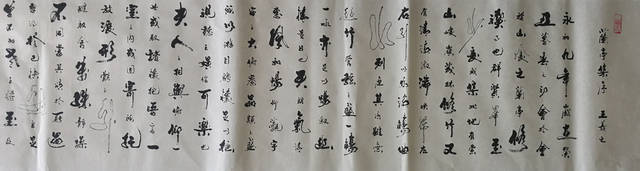 蘭亭集序 王羲之
永和九年歲在癸
丑暮春之初會於會
稽山陰之蘭亭脩
禊事也群賢畢至
少長咸集此地有崇
山峻領茂林脩竹又
有清流激湍映帶左
右引以為流觴曲
水列坐其次雖無
絲竹管絃之盛一觴
一詠亦足以暢敘幽
情是日也天朗氣清
惠風和暢仰觀宇
宙之大俯察品類之盛
所以遊目騁懷足以極
視聽之娛信可樂也
夫人之相與俯仰
一世或取諸懷抱悟言一
室之內或因寄所託
放浪形骸之外雖
趣舍萬殊靜躁
不同當其欣於所遇